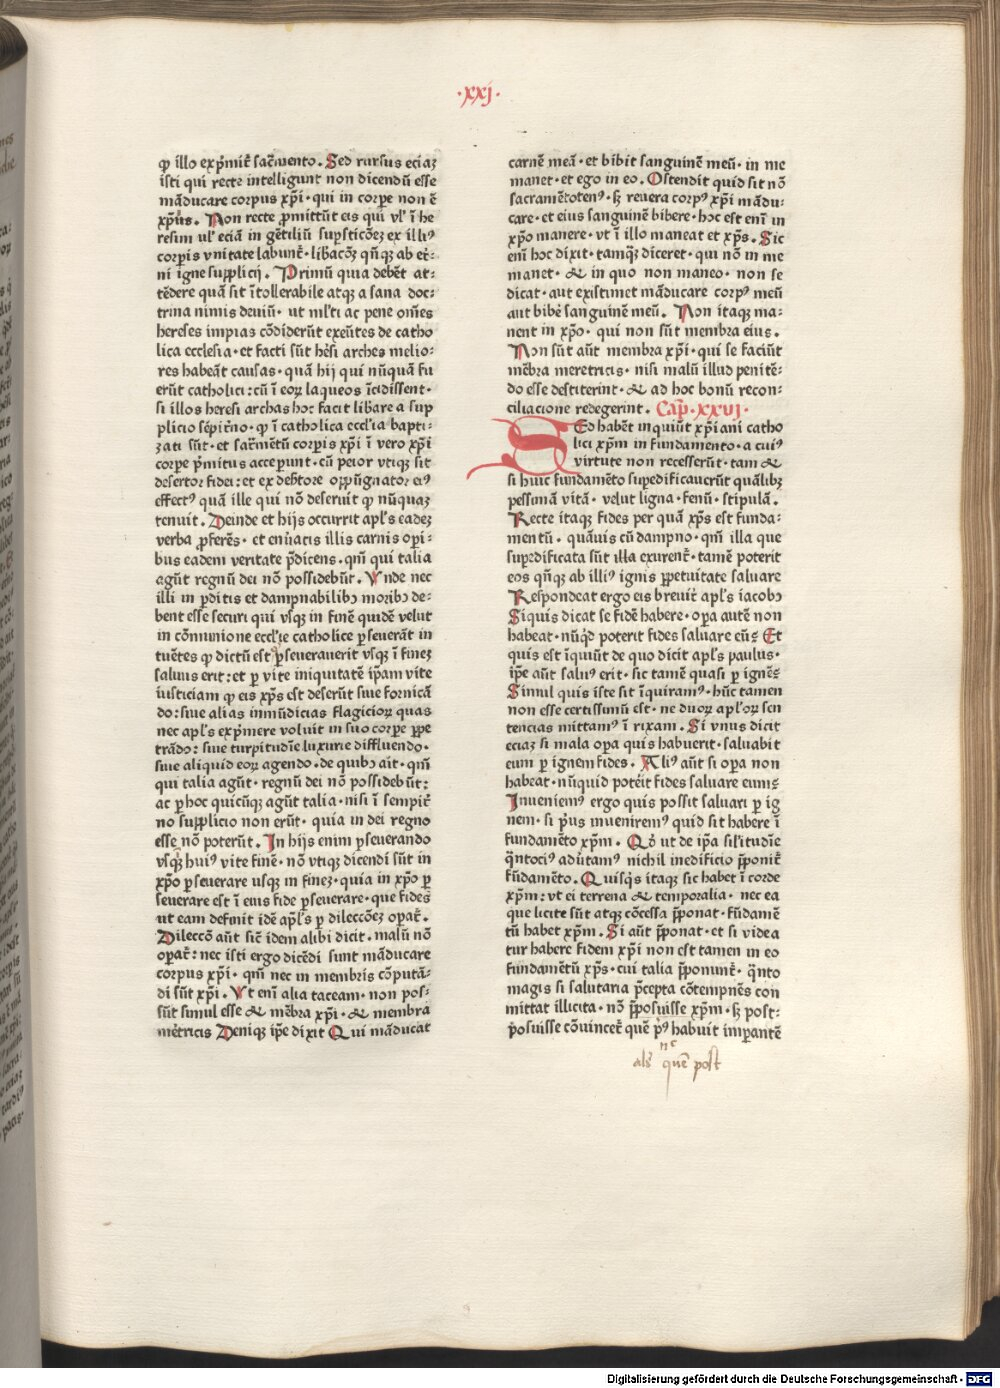 ·xxj·
ꝙ illo exp̄mit᷑ sac̄mento. Sed rursus eciaꝫ
isti qui recte intelligunt non dicendū esse
māducare corpus xp̄i · qui in corpe non ē
xp̄us. Non recte ꝓmittūt eis qui vl᷑ ī he
resim ul᷑ eciā in gētiliū suꝑsticōeꝫ ex illiꝰ
corꝑis vnitate labunt᷑ · lib̄acōꝫ qn̄qꝫ ab et᷑:
ni igne supplicij. Primū quia debēt at:
tēdere quā sit ītollerabile atqꝫ a sana doc:
trina nimis deviū · ut ml̄ti ac pene om̄es
hereses impias cōdiderūt exeūtes de catho
lica ecclesia · et facti sūt hēsi arches melio:
res habeāt causas · quā hij qui nūquā fu
erūt catholici: cū ī eoꝝ laqueos īcidissent ·
si illos heresi archas hoc facit lib̄are a sup
plicio sēpit᷑no · ꝙ ī catholica eccl̄ia bapti:
zati sūt · et sac̄mētū corꝑis xp̄i ī vero xp̄i
corpe p̄mitus acceꝑunt · cū peior vtiqꝫ sit
desertor fidei: et ex deb̄tore oꝑpugnator eiꝰ
effectꝰ quā ille qui nō deseruit ꝙ nūquaꝫ
tenuit. Deinde et hijs occurrit apl̄s eadeꝫ
verba ꝓferēs · et enūatis illis carnis oꝑi:
bus eadem veritate p̄dicens · qm̄ qui talia
agūt regnū dei nō possidebūt. Vnde nec
illi in ꝑditis et dampnabilibꝫ moribꝫ de:
bent esse securi qui vsqꝫ in finē quidē velut
in cōmunione eccl̄ie catholice ꝑseuerāt in
tuētes ꝙ dictū est ꝑseverauerit vsqꝫ ī fineꝫ
saluus erit: et ꝑ vite iniquitatē ip̄am vite
iusticiam ꝙ eis xp̄s est deserūt siue fornicā
do: siue alias inmūdicias flagicioꝝ quas
nec apl̄s exp̄mere voluit in suo corpe ꝑpe
trādo: siue turpitudīe luxurie diffluendo ·
siue aliquid eoꝝ agendo · de quibꝫ ait · qm̄
qui talia agūt · regnū dei nō possidebūt:
ac ꝑ hoc quicūqꝫ agūt talia · nisi ī sempit᷑
no supplicio non erūt · quia in dei regno
esse nō poterūt. In hijs enim ꝑseuerando
vsqꝫ huiꝰ vite finē · nō vtiqꝫ dicendi sūt in
xp̄o ꝑseuerare usqꝫ in fineꝫ · quia in xp̄o ꝑ
seuerare est ī eius fide ꝑseuerare · que fides
ut eam definit idē apl̄s ꝑ dileccōeꝫ oꝑat᷑.
Dileccō aūt sic̄ idem alibi dicit · malū nō
oꝑat᷑: nec isti ergo dicēdi sunt māducare
corpus xp̄i · qm̄ nec in membris cōputā:
di sūt xp̄i. Vt eni alia taceam · non pos:
sūt simul esse ⁊ mēbra xp̄i · ⁊ membra
metricis Denique ip̄e dixit Qui māducat
carnē meā · et bibit sanguinē meū · in me
manet · et ego in eo. Ostendit quid sit nō
sacramētotenꝰ · sꝫ reuera corpꝰ xp̄i mādu:
care · et eius sanguinē bibere · hoc est enī in
xp̄o manere · vt ī illo maneat et xp̄s. Sic
eni hoc dixit · tamqꝫ diceret · qui nō in me
manet · ⁊ in quo non maneo · non se
dicat · aut existimet māducare corpꝰ meū
aut bibē sanguinē meū. Non itaqꝫ ma:
nent in xp̄o · qui non sūt membra eius.
Non sūt aūt membra xp̄i · qui se faciūt
mēbra meretricis · nisi malū illud penitē:
do esse destiterint · ⁊ ad hoc bonū recon:
ciliacione redegerint. Cap̄ · xxvj ·
SEd habēt inquiūt xp̄iani catho
lici xp̄m in fundamento · a cuiꝰ
virtute non recesserūt · tam ⁊
si huic fundamēto suꝑedificauerūt quālibꝫ
pessimā vitā · velut ligna · fenū · stipulā.
Recte itaqꝫ fides per quā xp̄s est funda:
mentū · quāuis cū dampno · qm̄ illa que
suꝑedificata sūt illa exurent᷑ · tamē poterit
eos qn̄qꝫ ab illiꝰ ignis ꝑpetuitate saluare
Respondeat ergo eis breuit᷑ apl̄s iacobꝫ
Siquis dicat se fidē habere · oꝑa autē non
habeat · nūqd poterit fides saluare eū? Et
quis est īquiūt de quo dicit apl̄s paulus ·
ip̄e aūt saluꝰ erit · sic tamē quasi ꝑ ignē?
Simul quis iste sit īquiramꝰ · hūc tamen
non esse certissimū est · ne duoꝝ apl̄oꝝ sen
tencias mittamꝰ ī rixam. Si vnus dicit
eciaꝫ si mala oꝑa quis habuerit · saluabit
eum ꝑ ignem fides. Aliꝰ aūt si oꝑa non
habeat · nūquid poteīt fides saluare eum?
Inueniemꝰ ergo quis possit saluari ꝑ ig
nem · si p̄us inuenirem' quid sit habere ī
fundamēto xp̄m. Qd̓ ut de ip̄a sil̓itudīe
qͣntociꝰ aduͣtamꝰ nichil inedificio p̄ponit᷑
fūdamēto. Quisqꝫ itaqꝫ sic habet ī corde
xp̄m: vt ei terrena ⁊ temporalia · nec ea
que licite sūt atqꝫ cōcessa p̄ponat · fūdamē
tū habet xp̄m. Si aūt p̄ponat · et si videa
tur habere fidem xp̄i non est tamen in eo
fundamētū xp̄s · cui talia p̄ponunt᷑ · qͣnto
magis si salutaria p̄cepta cōtempnēs con
mittat illicita · nō p̄posuisse xp̄m · sꝫ post:
posuisse cōuincet᷑ quē pꝰ habuit imꝑantē
als quē post